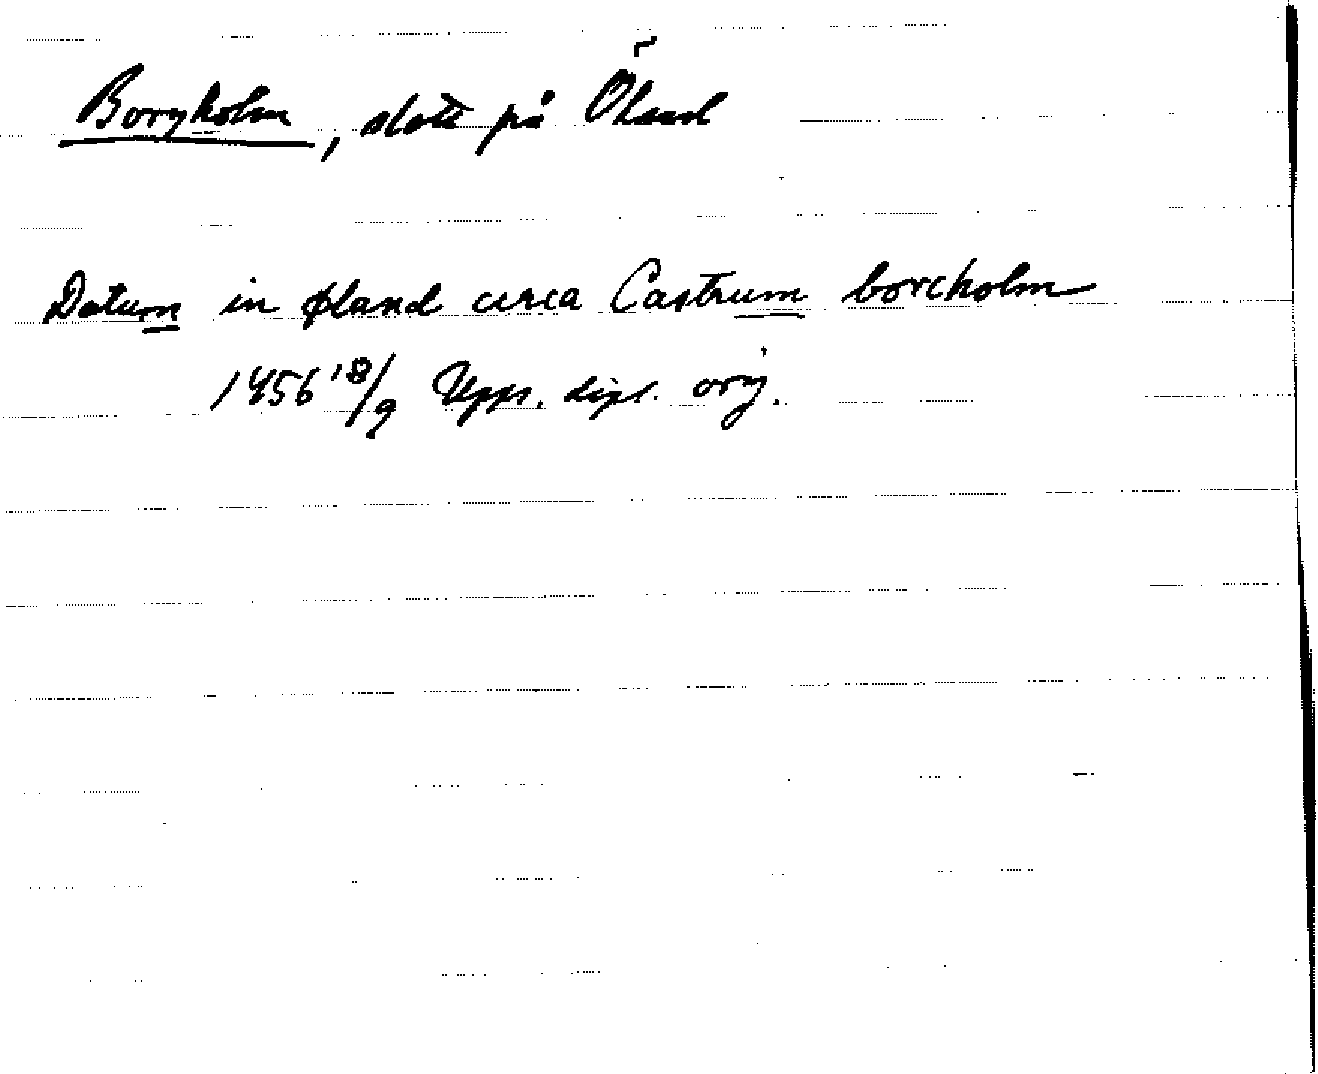 Borgholm, slott på Öland
Datum in øland circa Castrum borcholm
1456 18/9 Upps. dipl. orig.